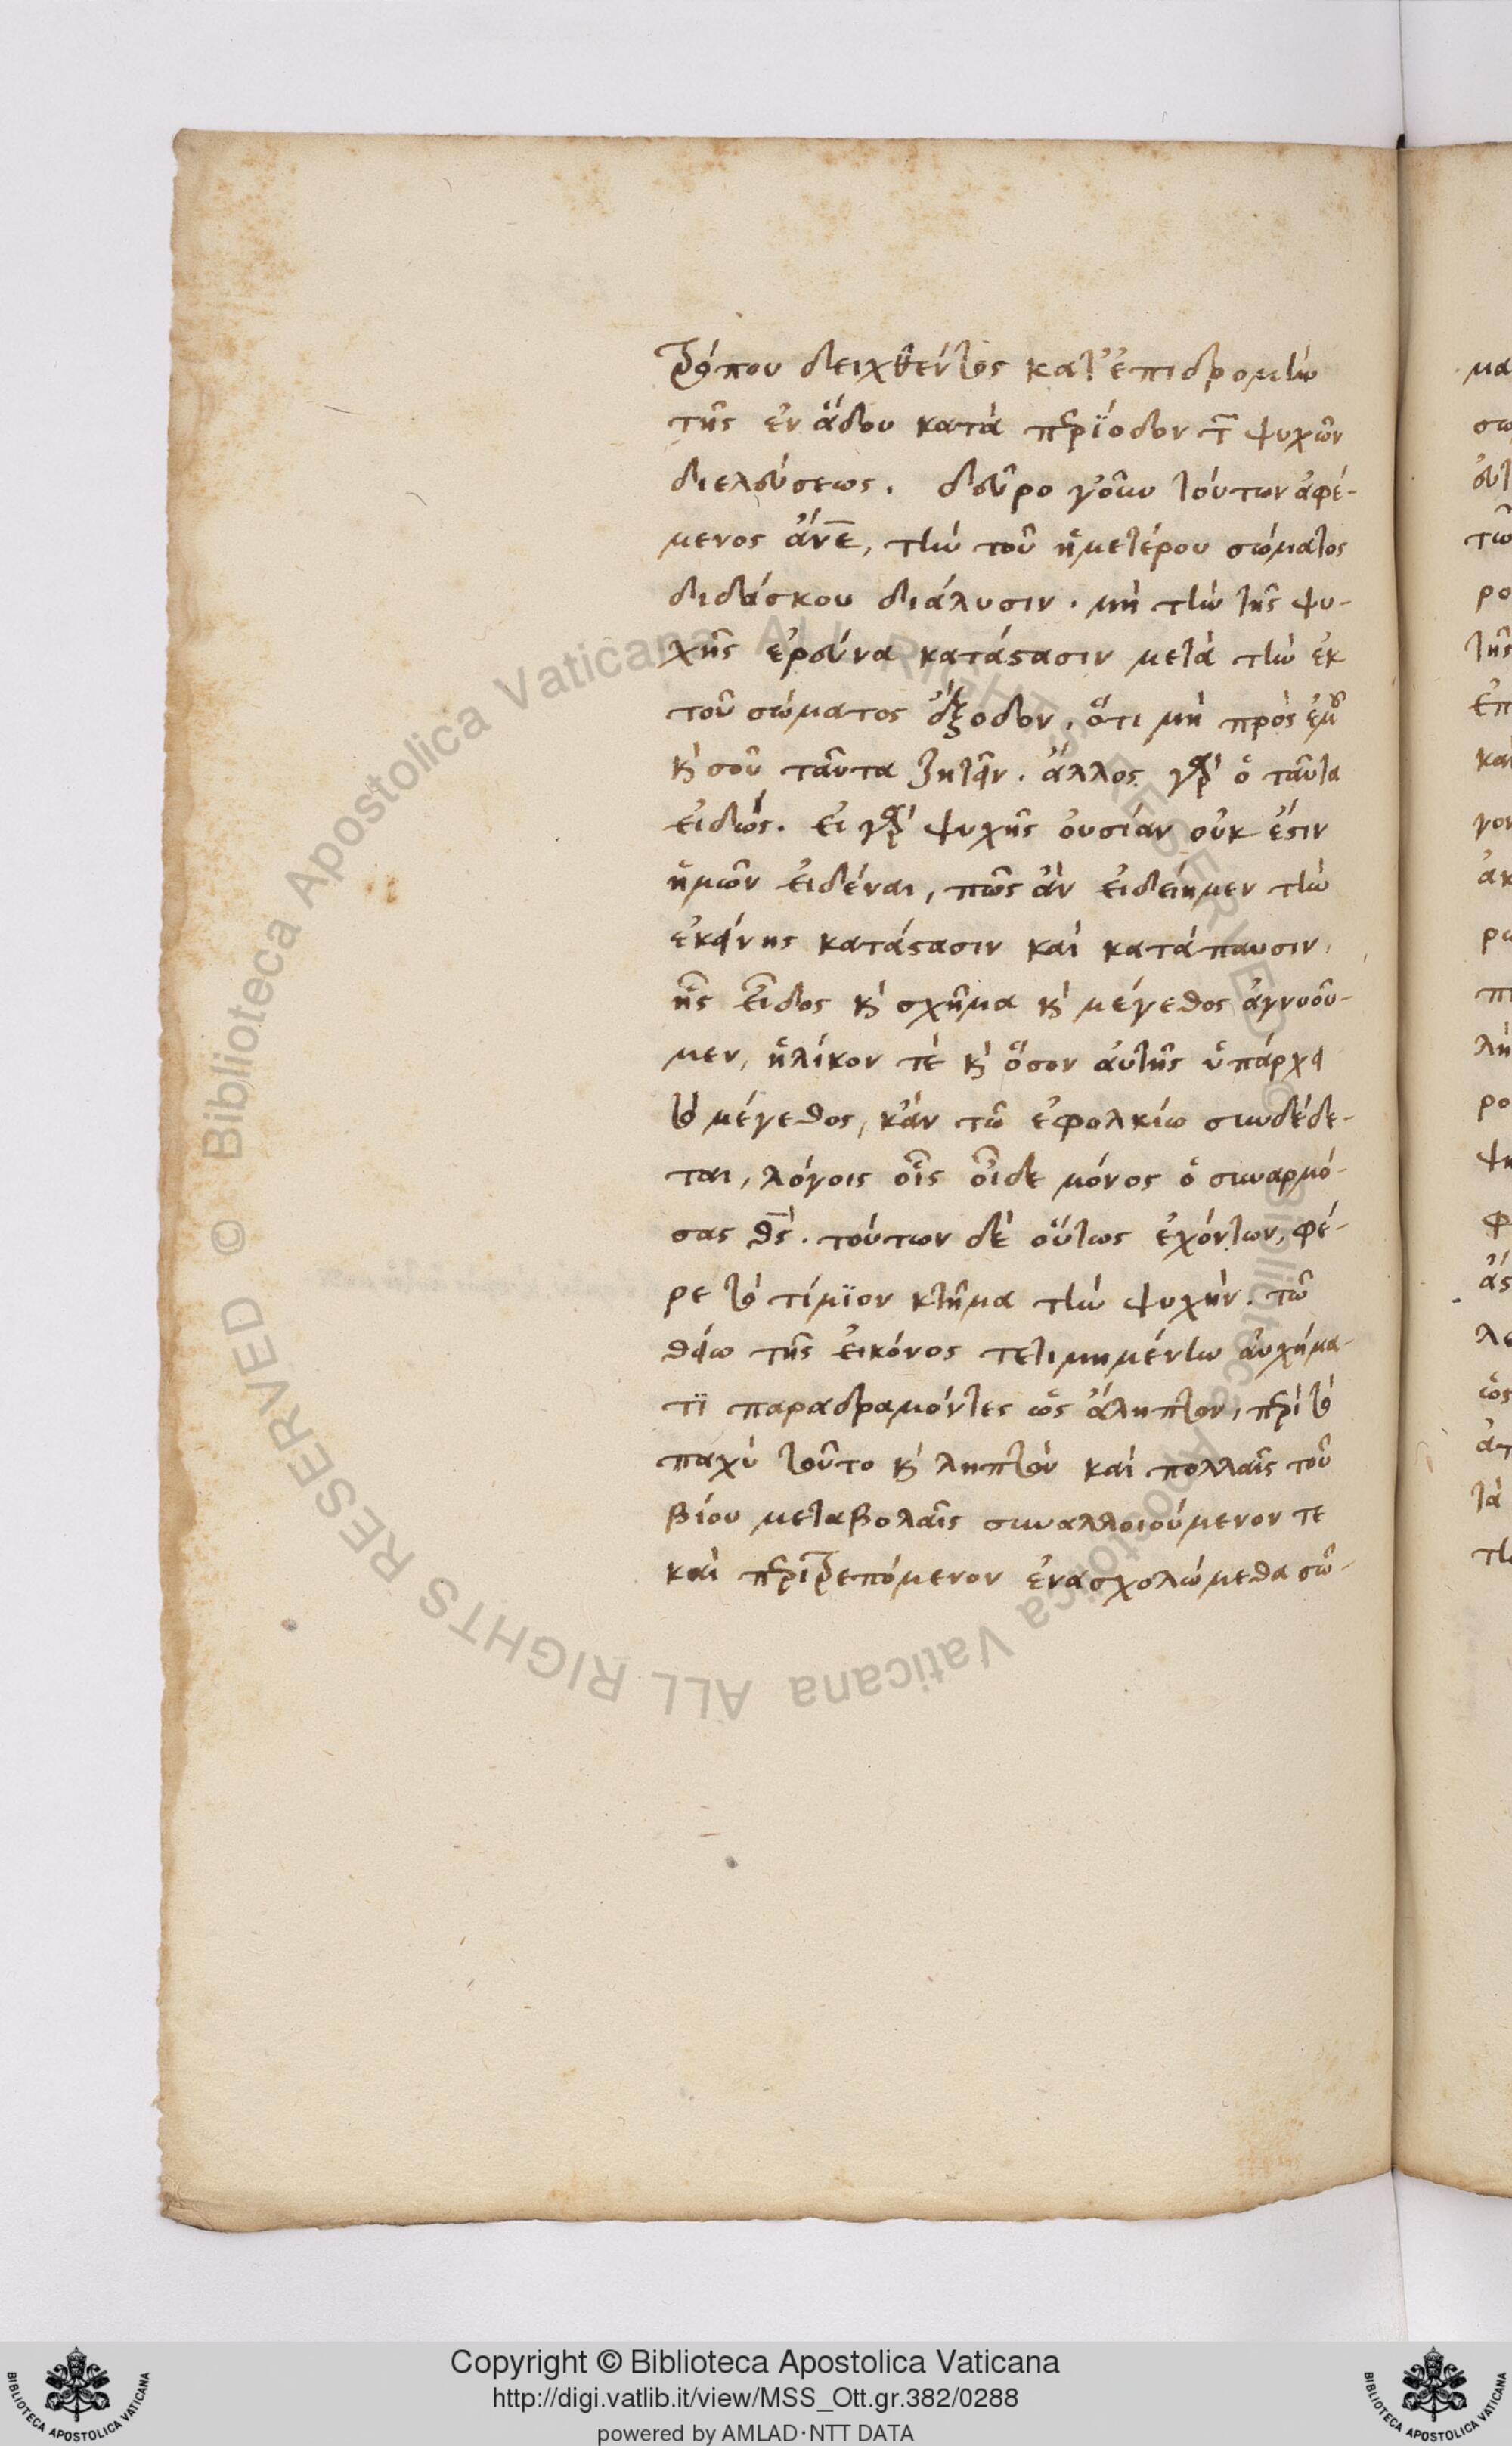 τρόπου δειχθέντος κατ' ἐπιδρομὴν
τῆς ἐν ἅδου κατὰ περίοδον τῶν ψυχῶν
διελεύσεως. δεῦρο γοῦν τούτων ἀφέ-
μενος ἄνε, τὴν τοῦ ἡμετέρου σώματος
διδάσκου διάλυσιν. μὴ τὴν τῆς ψυ-
χῆς ἐρεύνα κατάστασιν μετὰ τὴν ἐκ
τοῦ σώματος ἔξοδον, ὅτι μὴ πρὸς ἐμοῦ
καὶ σοῦ ταῦτα ζητεῖν. ἄλλος γὰρ ὁ ταῦτα
εἰδώς. εἰ γὰρ ψυχῆς οὐσίαν οὐκ ἔστιν
ἡμῶν εἰδέναι, πῶς ἂν εἰδείημεν τὴν
ἐκείνης κατάστασιν καὶ κατάπαυσιν,
ἧς εἶδος καὶ σχῆμα καὶ μέγεθος ἀγνοοῦ-
μεν, ἡλίκον τὲ καὶ ὅσον αὐτῆς ὑπάρχει
τὸ μέγεθος, κἂν τῶ ἐφολκίω συνδέδε-
ται, λόγοις οἷς οἶδε μόνος ὁ συναρμό-
σας θς. τούτων δὲ οὕτως ἐχόντων, φέ-
ρε τὸ τίμϊον κτῆμα τὴν ψυχὴν. τῶ
θείω τῆς εἰκόνος τετιμημένην αὐχήμα-
τϊ παραδραμόντες ὡς ἄληπτον, περὶ τὸ
παχὺ τοῦτο καὶ ληπτὸν καὶ πολλαῖς τοῦ
βίου μεταβολαῖς συναλλοιούμενον τε
καὶ περιτρεπόμενον ἐνασχολώμεθα σῶ-
Copyright © Biblioteca Apostolica Vaticana
http://digi.vatlib.it/view/MSS_Ott.gr.382/0288
powered by AMLAD·NTT DATA